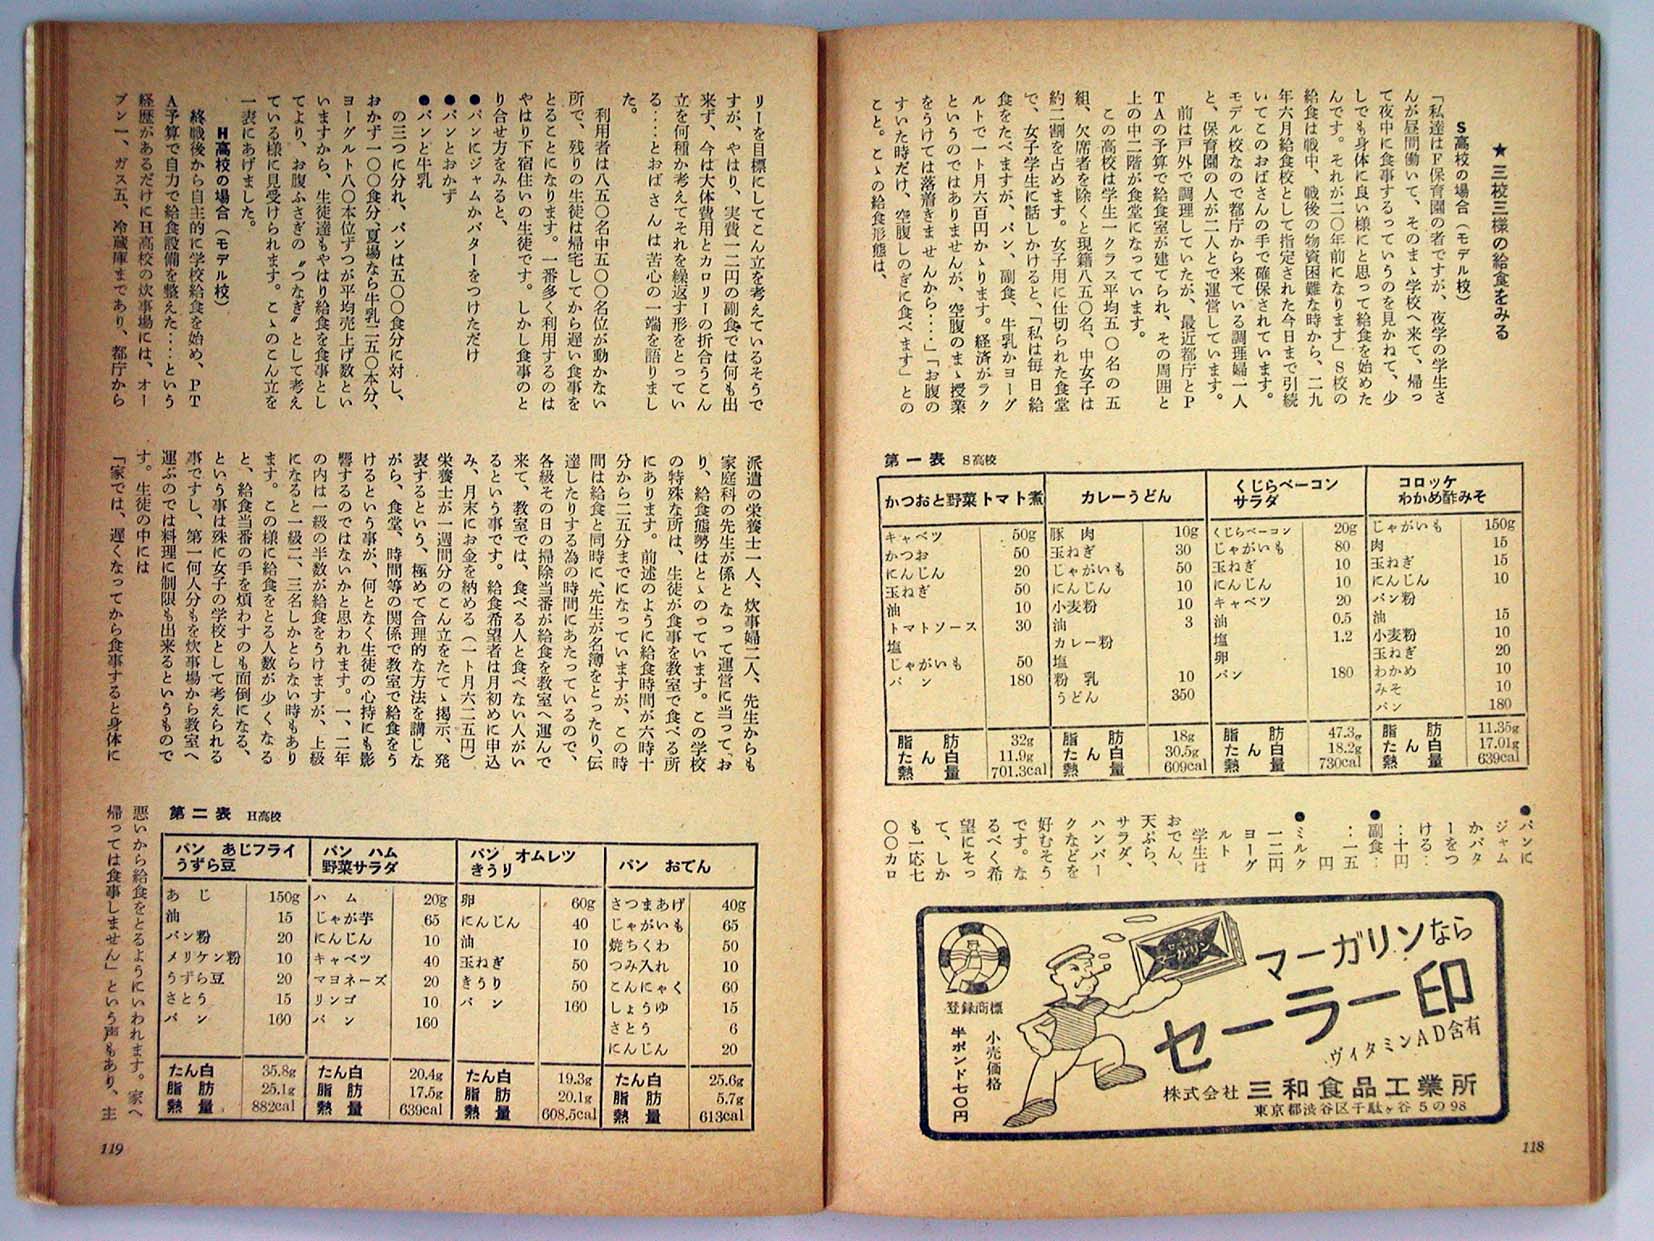 ★ 三校三様の給食をみる
S高校の場合（モデル校）
「私達はF保育園の者ですが、夜学の学生さ
んが昼間働いて、そのまゝ学校へ来て、帰っ
て夜中に食事するっていうのを見かねて、少
しでも身体に良い様にと思って給食を始めた
んです。それが二〇年前になります」S校の
給食は戦中、戦後の物資困難な時から、二九
年六月給食校として指定された今日まで引続
いてこのおばさんの手で確保されています。
モデル校なので都庁から来ている調理婦一人
と、保育園の人が二人とで運営しています。
前は戸外で調理していたが、最近都庁とP
TAの予算で給食室が建てられ、その周囲と
上の中二階が食堂になっています。
この高校は学生一クラス平均五〇名の五
組、欠席者を除くと現籍八五〇名、中女子は
約二割を占めます。女子用に仕切られた食堂
で、女子学生に話しかけると、「私は毎日給
食をたべますが、パン、副食、牛乳かヨーグ
ルトで一ト月六百円かゝります。経済がラク
というのではありませんが、空腹のまゝ授業
をうけては落着きませんから‥‥」「お腹の
すいた時だけ、空腹しのぎに食べます」との
こと。こゝの給食形態は、
第一表 S高校
かつおと野菜トマト煮
キャベツ 50g
かつお 50
にんじん 20
玉ねぎ 50
油 10
トマトソース 30
塩
じゃがいも 50
パン 180
脂肪 32g
たん白 11.9g
熱量 701.3cal
カレーうどん
豚肉 10g
玉ねぎ 30
じゃがいも 50
にんじん 10
小麦粉 10
油 3
カレー粉
塩
粉乳 10
うどん 350
脂肪 18g
たん白 30.5g
熱量 609cal
くじらベーコン
サラダ
くじらベーコン 20g
じゃがいも 80
玉ねぎ 10
にんじん 10
キャベツ 20
油 0.5
塩 1.2
卵
パン 180
脂肪 47.3g
たん白 18.2g
熱量 730cal
コロッケ
わかめ酢みそ
じゃがいも 150g
肉 15
玉ねぎ 15
にんじん 10
パン粉
油 15
小麦粉 10
玉ねぎ 20
わかめ 10
みそ 10
パン 180
脂肪 11.35g
たん白 17.01g
熱量 639cal
●パンに
ジャム
かバタ
ーをつ
ける‥
‥十円
●副食‥
‥一五
円
●ミルク
一二円
ヨーグ
ルト
学生は
おでん、
天ぷら、
サラダ、
ハンバー
クなどを
好むそう
です。な
るべく希
望にそっ
て、しか
も一応七
〇〇カロ
マーガリンなら
セーラー印
ヴィタミンAD含有
株式会社 三和食品工業所
東京都渋谷区千駄ヶ谷5の98
登録商標
小売価格
半ポンド七〇円
マーガリン
118
リーを目標にしてこん立を考えているそうで
すが、やはり、実費一二円の副食では何も出
来ず、今は大体費用とカロリーの折合うこん
立を何種か考えてそれを繰返す形をとってい
る‥‥とおばさんは苦心の一端を語りまし
た。
利用者は八五〇名中五〇〇名位が動かない
所で、残りの生徒は帰宅してから遅い食事を
とることになります。一番多く利用するのは
やはり下宿住いの生徒です。しかし食事のと
り合せ方をみると、
●パンにジャムかバターをつけただけ
●パンとおかず
●パンと牛乳
の三つに分れ、パンは五〇〇食分に対し、
おかず一〇〇食分、夏場なら牛乳二五〇本分、
ヨーグルト八〇本位ずつが平均売上げ数とい
いますから、生徒達もやはり給食を食事とし
てより、お腹ふさぎの〝つなぎ〟として考え
ている様に見受けられます。こゝのこん立を
一表にあげました。
H高校の場合（モデル校）
終戦後から自主的に学校給食を始め、PT
A予算で自力で給食設備を整えた‥‥という
経歴があるだけにH高校の炊事場には、オー
ブン一、ガス五、冷蔵庫まであり、都庁から
派遣の栄養士一人、炊事婦二人、先生からも
家庭科の先生が係となって運営に当って、お
り、給食態勢はとゝのっています。この学校
の特殊な所は、生徒が食事を教室で食べる所
にあります。前述のように給食時間が六時十
分から二五分までになっていますが、この時
間は給食と同時に、先生が名簿をとったり、伝
達したりする為の時間にあたっているので、
各級その日の掃除当番が給食を教室へ運んで
来て、教室では、食べる人と食べない人がい
るという事です。給食希望者は月初めに申込
み、月末にお金を納める（一ト月六二五円）
栄養士が一週間分のこん立をたて、掲示、発
表するという、極めて合理的な方法を講じな
がら、食堂、時間等の関係で教室で給食をう
けるという事が、何となく生徒の心持にも影
響するのではないかと思われます。一、二年
の内は一級の半数が給食をうけますが、上級
になると一級二、三名しかとらない時もあり
ます。この様に給食をとる人数が少くなる
と、給食当番の手を煩わすのも面倒になる、
という事は殊に女子の学校として考えられる
事ですし、第一何人分もを炊事場から教室へ
運ぶのでは料理に制限も出来るというもので
す。生徒の中には
「家では、遅くなってから食事すると身体に
悪いから給食をとるようにいわれます。家へ
帰っては食事しません」という声もあり、主
第二表 H高校
パン あじフライ
うずら豆
あじ 150g
油 15
パン粉 20
メリケン粉 10
うずら豆 20
さとう 15
パン 160
たん白 35.8g
脂肪 25.1g
熱量 882cal
パン ハム
野菜サラダ
ハム 20g
じゃが芋 65
にんじん 10
キャベツ 40
マヨネーズ 20
リンゴ 10
パン 160
たん白 20.4g
脂肪 17.5g
熱量 639cal
パン オムレツ
きうり
卵 60g
にんじん 40
油 10
玉ねぎ 50
きうり 50
パン 160
たん白 19.3g
脂肪 20.1g
熱量 608.5cal
パン おでん
さつまあげ 40g
じゃがいも 65
焼ちくわ 50
つみ入れ 10
こんにゃく 60
しょうゆ 15
さとう 6
にんじん 20
たん白 25.6g
脂肪 5.7g
熱量 613cal
119